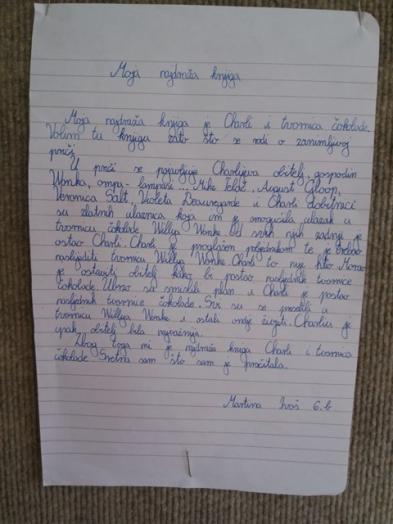 Moja najdraža knjiga
Moja najdraža knjiga je Charli i tvornica čokolade.
Volim tu knjigu zato što se radi o zanimljivoj
priči.
U priči se pojavljuje Charlijeva obitelj, gospodin
Wonka, ompa-lompasi... Mike Teldž, August Gloop,
Veronica Salt, Violeta Beauregarde i Charli dobitnici
su zlatnih ulaznica koja im je omogućila ulazak u
tvornicu čokolade Willya Wonke. Od svih njih zadnji je
ostao Charli. Charli je proglašen pobjednikom te je trebao
naslijediti tvornicu Willya Wonke. Charli to nije htio. Morao
je ostaviti obitelj kako bi postao nasljednik tvornice
čokolade. Ubrzo su smislili plan i Charli je postao
nasljednik tvornice čokolade. Svi su se preselili u
tvornicu Willya Wonke i ostali ondje živjeti. Charliu je
ipak obitelj bila najvažnija.
Zbog toga mi je najdraža knjiga Charli i tvornica
čokolade. Sretna sam što sam je pročitala.
Martina 6.b